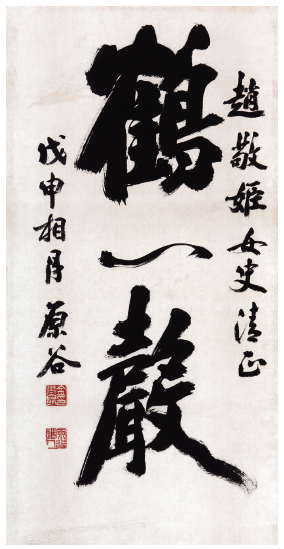 趙敬姬女史清正
鶴一聲
戊申相月 原谷